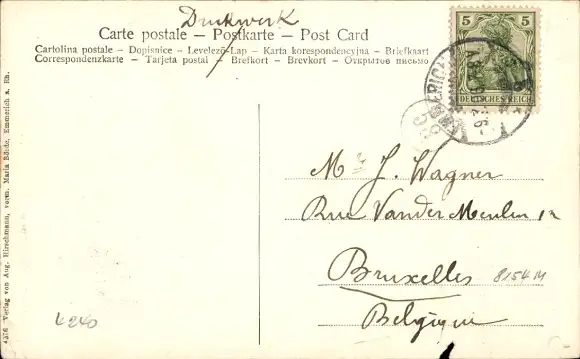 Druckwerk
Carte postale – Postkarte – Post Card
Cartolina postale – Dopisnice – Levelező-Lap – Karta korespondencyjna – Briefkaart
Correspondenzkarte – Tarjeta postal – Brefkort – Brevkort – Открытое письмо
5 5
DEUTSCHES REICH
EMMERICH
Mr J. Wagner
Rue Vander Meulen 12
Bruxelles
8154M
Belgique
4240
4376 Verlag von Aug. Hirschmann, vorm. Maria Böcke, Emmerich a. Rh.